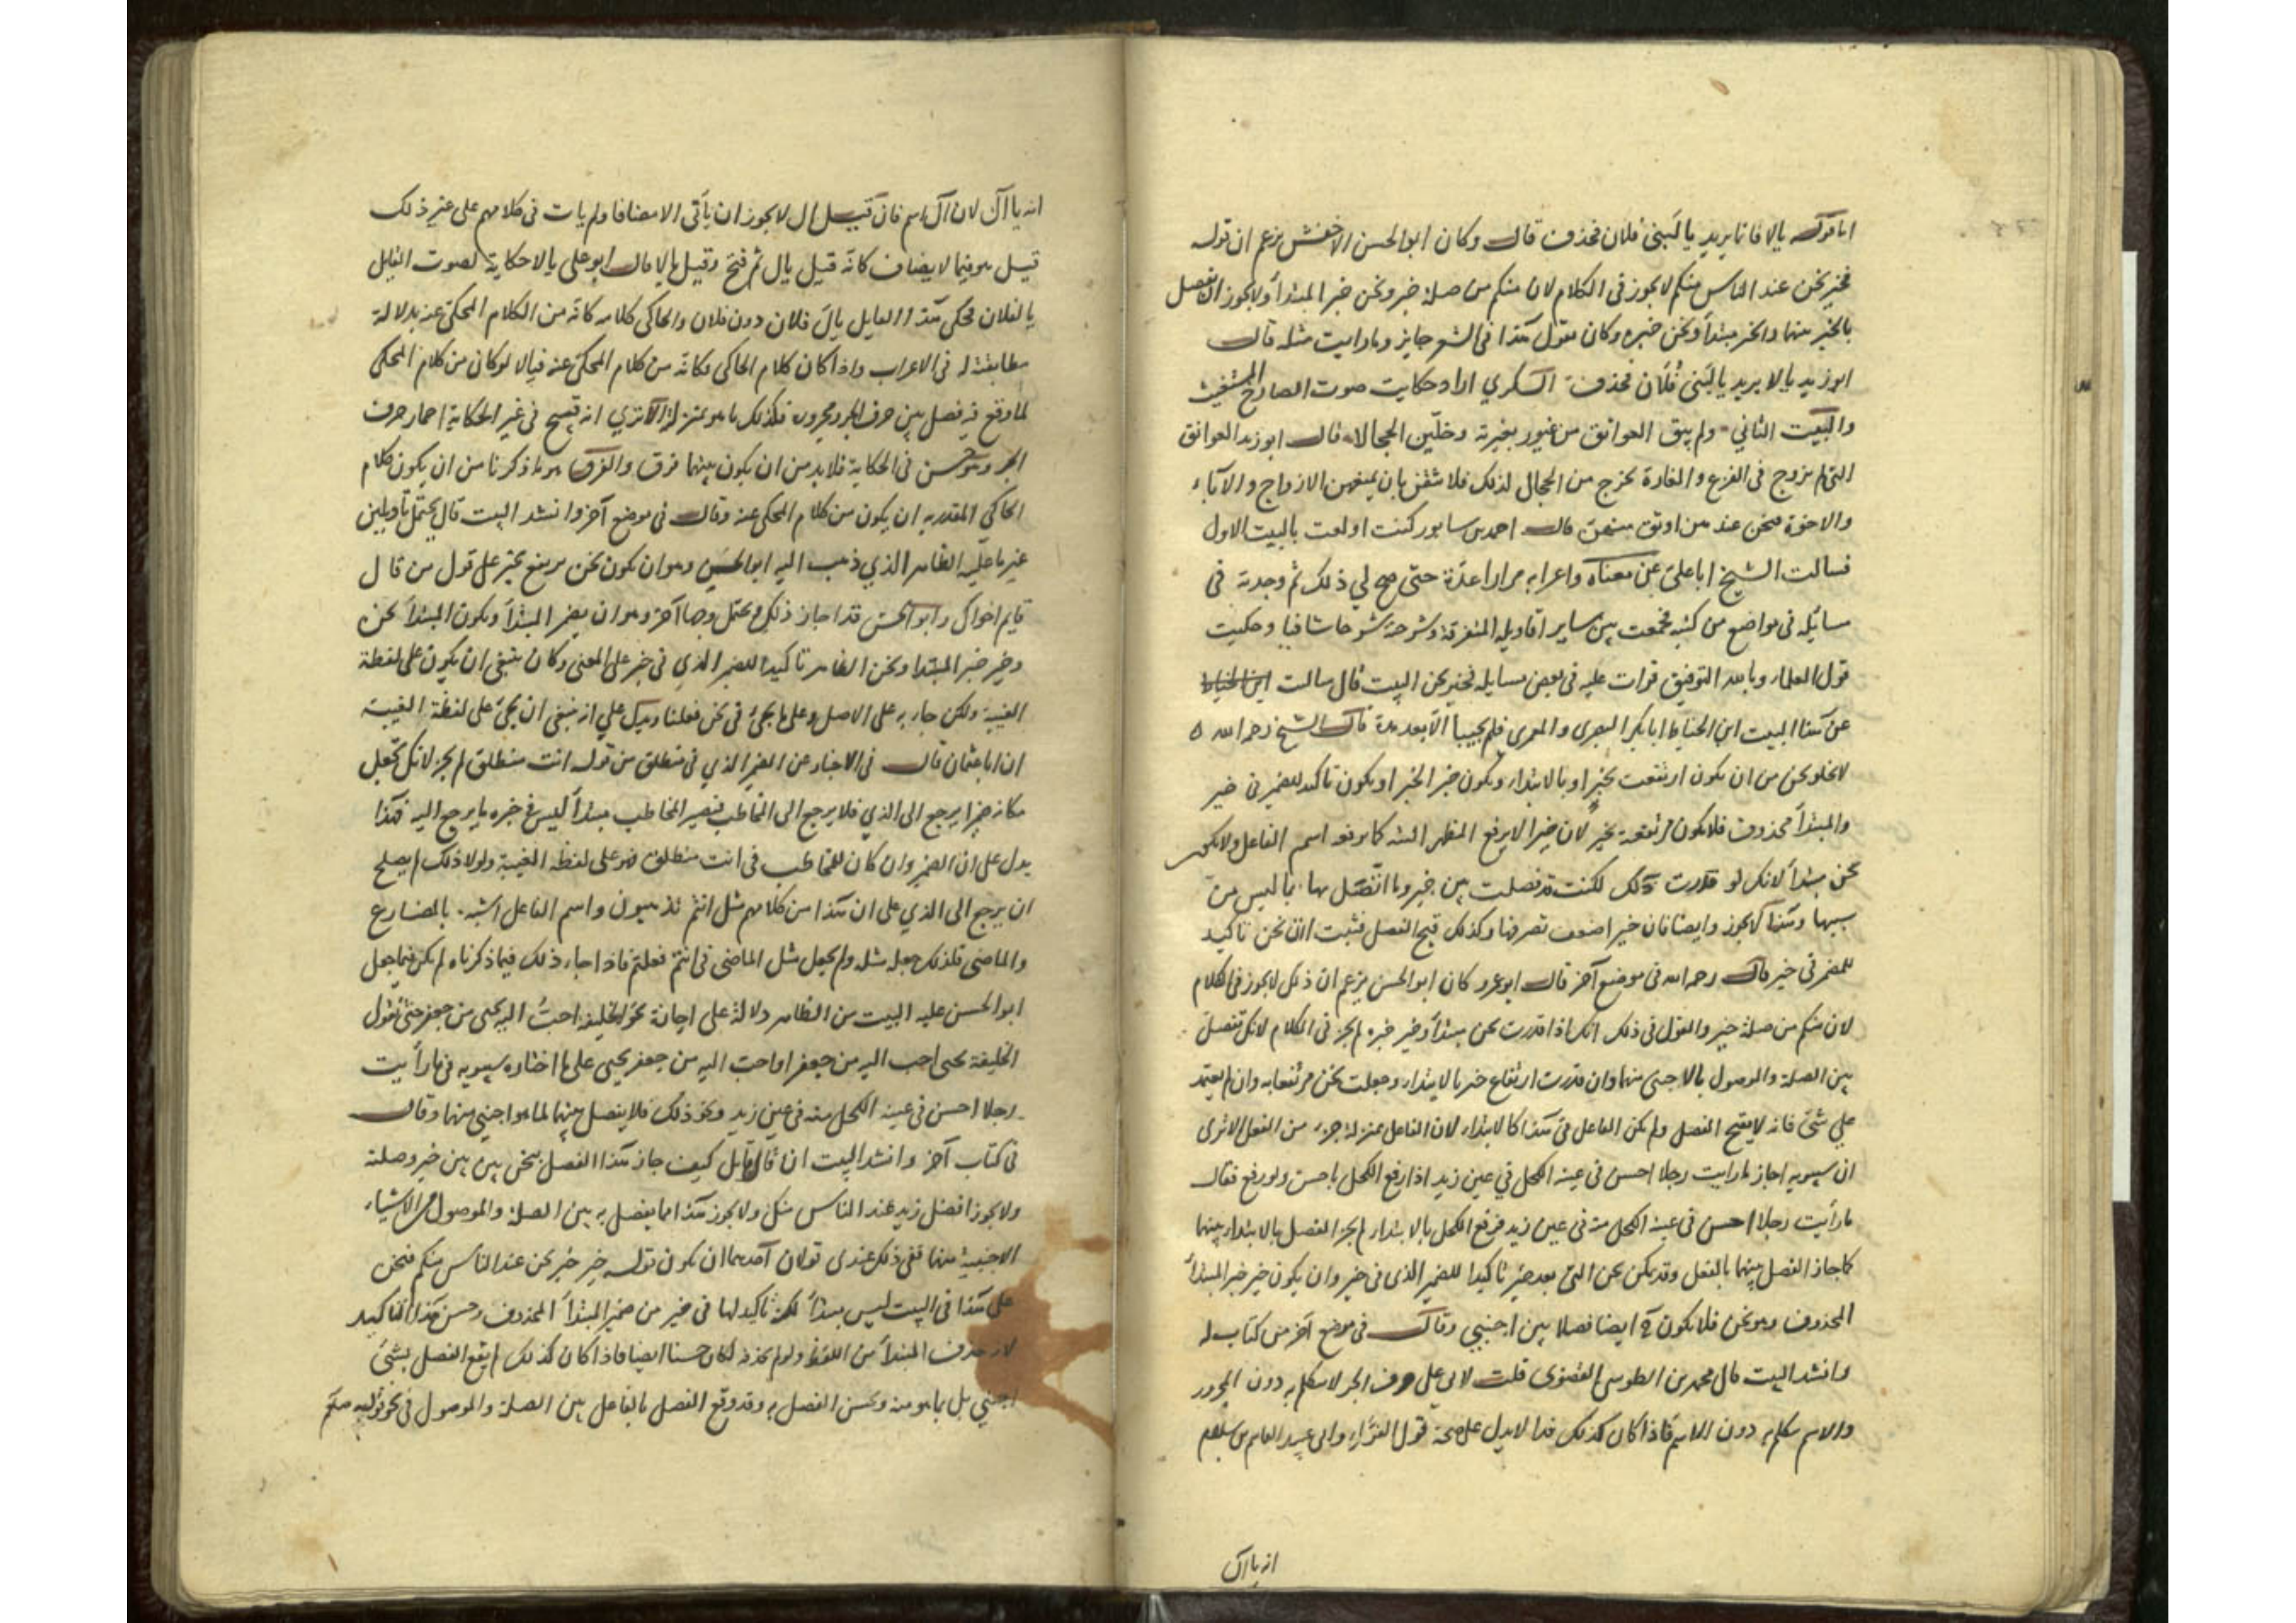 اما قوله يالا فانا يريد يا لبنى فلان فحذف قال وكان ابو الحسن الاخفش يزعم ان قوله
فخير نحن عند الناس منكم لا يجوز فى الكلام لان منكم من صلة خير ونحن خبر المبتدأ ولا يجوز ان تفصل
بالخبر بينهما والخبر مبتدأ ونحن خبره وكان يقول هذا فى الشعر جايز وما رايت مثله قال
ابو زيد يالا يريد يا لبنى فلان فحذف السكري اراد حكايت صوت الصارخ المستغيث
والبيت الثاني ولم يبق العواتق من غيور بغيرته وخلين الحجالا قال ابو زيد العواتق
التى لم تزوج فى الفزع والغارة تخرج من الحجال لذلك فلا تثقن بان يمنعهن الازواج والآباء
والاخوة فنحن عند من اوثق منهن قال احمد بن سابور كنت اولعت بالبيت الاول
فسالت الشيخ ابا على عن معناه واعرابه مرارا عدة حتى صح لي ذلك ثم وجدته فى
مسائله فى مواضع من كتبه فجمعت بين ساير اقاويله المتفرقة وشرحته شرحا شافيا وحكيت
قول العلماء وبالله التوفيق قرات عليه فى بعض مسايله فخير نحن البيت قال سالت ابن الخياط
عن هذا البيت ابن الخياط ابا بكر البصرى والمعمرى فلم يجيبا الا بعد مدة قال الشيخ رحمه الله ه
لا يخلو نحن من ان يكون ارتفعت بخير او بالابتداء ويكون خبر الخبر او يكون تاكيد للضمير فى خير
والمبتدأ محذوف فلا يكون مرتفعة بخير لان خيرا لا يرفع المظهر البتة كما يرفعه اسم الفاعل ولا يكون
نحن مبتدأ لانك لو قدرت ذلك لكنت قد فصلت بين خير وما اتصل بها بما ليس من
سببها وهذا لا يجوز وايضا فان خيرا ضعف تصرفها وكذلك قبح الفصل فثبت ان نحن تاكيد
للمضمر فى خير قال رحمه الله فى موضع آخر قال ابو عمرو كان ابو الحسن يزعم ان ذلك لا يجوز فى الكلام
لان منكم من صلة خير والقول فى ذلك انك اذا قدرت نحن مبتدأ وخير خبره لم يجز فى الكلام لانك تفصل
بين الصلة والموصول بالاجنبى منهما وان قدرت ارتفاع خير بالابتداء وجعلت نحن مرتفعا به وان لم يعتمد
على شئ فانه لا يقبح الفصل ولم يكن الفاعل فى هذا كالابتداء لان الفاعل بمنزلة جزء من الفعل الا ترى
ان سيبويه اجاز ما رايت رجلا احسن فى عينه الكحل في عين زيد اذا رفع الكحل باحسن ولو رفع فقال
ما رأيت رجلا احسن فى عينه الكحل منه فى عين زيد فرفع الكحل بالابتداء لم يجز الفصل بالابتداء بينهما
كما جاز الفصل بينهما بالفعل وقد يكن نحن التى بعد خير تاكيدا للضمير الذى فى خير وان يكون خير خبر المبتدأ
المحذوف وهو نحن فلا يكون ايضا فصلا بين اجنبيين وقال فى موضع آخر من كتاب له
وانشد البيت قال محمد بن الطوسى القصرى قلت لابى على حرف الجر لا يتكلم به دون المجرور
والاسم يتكلم به دون الاسم فاذا كان كذلك فذا لا يدل على صحة قول الفراء وابى عبيد القاسم بن سلام
انه يا آل
انه يا آل لان آل اسم فان قيل آل لا يجوز ان يأتى الا مضافا ولم يات فى كلامهم على غير ذلك
قيل هو فيما لا يضاف كانه قيل يال ثم فتح وقيل يالا قال ابو على يالا حكاية لصوت القايل
يا لفلان فحكى هذا القايل يال فلان دون فلان والحاكى كلامه كانه من الكلام المحكى عنه بدلالة
مطابقته له فى الاعراب واذا كان كلام الحاكى فكانه من كلام المحكى عنه فيالا لو كان من كلام المحكى
لما وقع فيه فصل بين حرف الجر ومجروره فكذلك ما هو بمنزلة الا ترى انه قبيح فى غير الحكاية اضمار حرف
الجر وهو حسن فى الحكاية فلا بد من ان يكون بينهما فرق والفرق هو ما ذكرنا من ان يكون كلام
الحاكى المقدر به ان يكون من كلام المحكى عنه وقال فى موضع آخر وانشد البيت قال يحتمل تأويلين
غير ما عليه الظاهر الذي ذهب اليه ابو الحسن وهو ان تكون نحن مرتفع بخير على قول من قال
قايم اخواك وابو الحسن قد اجاز ذلك ويحتمل وجها آخر وهو ان يضمر المبتدأ ويكون المبتدأ نحن
وخير خبر المبتدا ونحن الظاهر تاكيدا للضمير الذي فى خير على المعنى وكان ينبغى ان يكون على لفظة
الغيبة ولكن جاء به على الاصل وعلى ما يجئ فى نحن فعلنا ويدلك على انه ينبغى ان يجئ على لفظة الغيبة
ان ابا عثمان قال فى الاخبار عن الضمير الذي فى منطلق من قوله انت منطلق لم يجز لانك تجعل
مكانه ضميرا يرجع الى الذي فلا يرجع الى المخاطب فيصير المخاطب مبتدأ ليس فى خبره ما يرجع اليه فهذا
يدل على ان الضمير وان كان للمخاطب فى انت منطلق فهو على لفظة الغيبة ولولا ذلك لم يصلح
ان يرجع الى الذي على ان هذا من كلامهم مثل انتم تذهبون واسم الفاعل اشبه بالمضارع
والماضى فلذلك جعله مثله ولم يجعل مثل الماضى فى انتم فعلتم فاذا جاء ذلك فيما ذكرناه لم يكن فيما جعل
ابو الحسن عليه البيت من الظاهر دلالة على اجازة نحو الخليفة احب اليه يحيى من جعفر حتى تقول
الخليفة يحيى احب اليه من جعفر او احب اليه من جعفر يحيى على ما اختاره سيبويه فى ما رأيت
رجلا احسن فى عينه الكحل منه فى عين زيد ونحو ذلك فلا يفصل بينهما لما هو اجنبى منهما وقال
فى كتاب آخر وانشد البيت ان قال قايل كيف جاز هذا الفصل بنحن بين خير وصلته
ولا يجوز افضل زيد عند الناس منك ولا يجوز هذا مما يفصل به بين الصلة والموصول من الاشياء
الاجنبية منهما ففى ذلك عندى قولان احدهما ان يكون قوله خير خبر نحن عند الناس منكم فنحن
على هذا فى البيت ليس مبتدأ لكنه تاكيد لها فى خير من ضمير المبتدأ المحذوف وحسن هذا التاكيد
لانه حذف المبتدأ من اللفظ ولو لم يحذف لكان حسنا ايضا فاذا كان كذلك لم يقع الفصل بشئ
اجنبي بل بما هو منه وحسن الفصل به وقد وقع الفصل بالفاعل بين الصلة والموصول فى نحو قوله صلعم